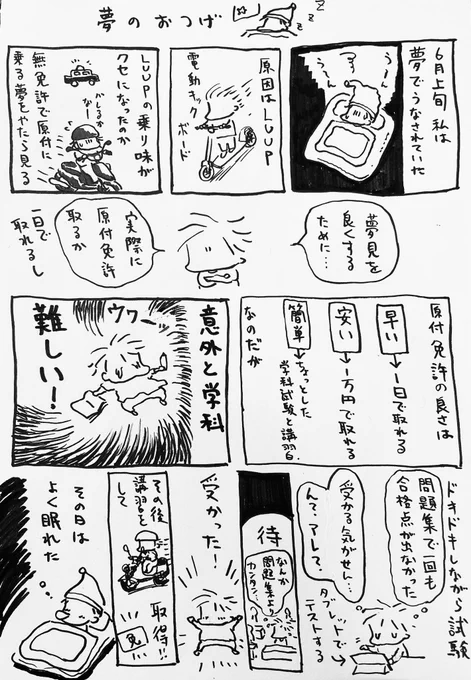 夢のおつげ
z
z
z
6月上旬 私は
夢でうなされていた
うーん
うーん
原因はLUUP
電動キック
ボード
LUUPの乗り味が
クセになったのか
無免許で原付に
乗る夢をやたら見る
バレるかなー
夢見を
良くする
ために…
実際に
原付免許
取るか
一日で
取れるし
原付免許の良さは
早い→1日で取れる
安い→1万円で取れる
簡単→ちょっとした
学科試験と講習
なのだが
意外と学科
難しい!
ウワーッ
ドキドキしながら試験
問題集で一回も
合格点が出なかった
受かる気がせん…
んで、アレして、
タブレットで
テストする
待
なんか
問題集より
カンタン
受かった!
その後
講習を
して
取得!!
免
その日は
よく眠れた